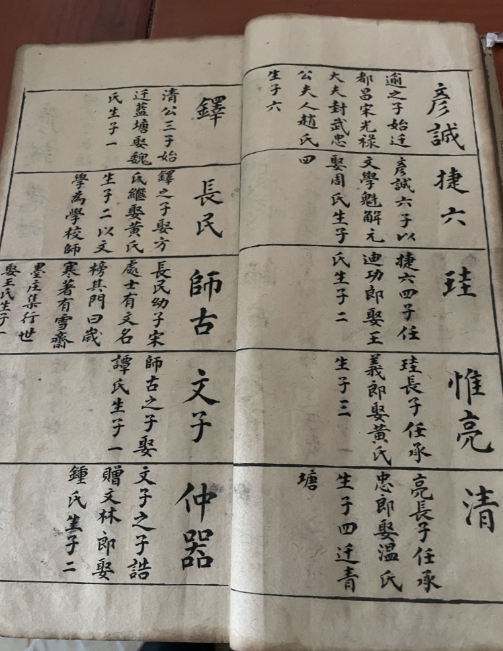 彥誠
逾之子始迁
都昌宋光祿
大夫封武忠
公夫人趙氏
生子六
捷六
彥誠六子以
文學魁解元
娶周氏生子
四
珪
捷六四子任
迪功郎娶王
氏生子二
惟亮
珪長子任承
義郎娶黃氏
生子三
清
亮長子任承
忠郎娶温氏
生子四迁青
塘
鐸
清公三子始
迁藍塘娶魏
氏生子一
長民
鐸之子娶方
氏繼娶黃氏
生子二以文
學為學校師
師古
長民幼子宋
處士有文名
榜其門曰歲
寒著有雪齋
墨庄集行世
娶王氏生子一
文子
師古之子娶
譚氏生子一
仲器
文子之子誥
贈文林郎娶
鍾氏生子二